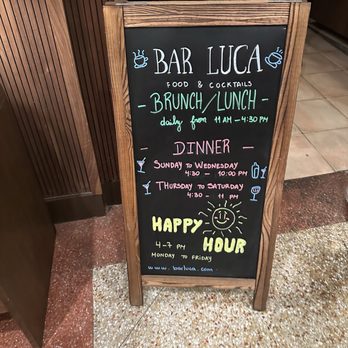 BAR LUCA
FOOD & COCKTAILS
- BRUNCH/LUNCH -
daily from 11 AM - 4:30 PM
- DINNER -
SUNDAY TO WEDNESDAY
4:30 - 10:00 PM
THURSDAY TO SATURDAY
4:30 - 11 PM
HAPPY
HOUR
4-7 PM
MONDAY TO FRIDAY
www.barluca.com